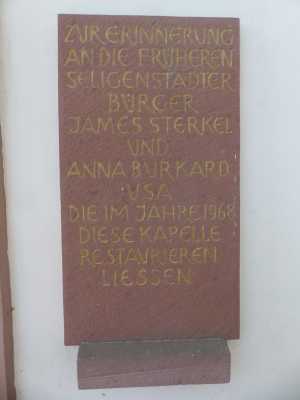 ZUR ERINNERUNG
AN DIE FRÜHEREN
SELIGENSTÄDTER
BÜRGER
JAMES STERKEL
UND
ANNA BURKARD
USA
DIE IM JAHRE 1968
DIESE KAPELLE
RESTAURIEREN
LIESSEN